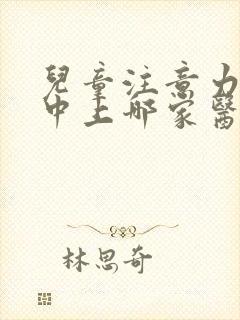 兒童注意力
中上哪家醫
林思奇